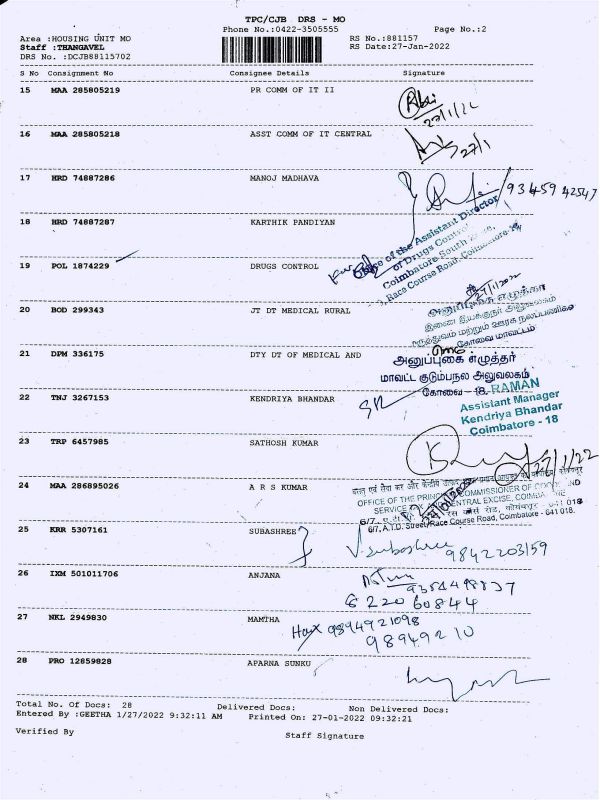 TPC/CJB DRS - MO
Phone No.:0422-3505555 Page No.:2
Area :HOUSING UNIT MO RS No.:881157
Staff :THANGAVEL RS Date:27-Jan-2022
DRS No. :DCJB88115702
S No Consignment No Consignee Details Signature
15 MAA 285805219 PR COMM OF IT II
27/1/22
16 MAA 285805218 ASST COMM OF IT CENTRAL
27/1
17 HRD 74887286 MANOJ MADHAVA
93459 42547
18 HRD 74887287 KARTHIK PANDIYAN
Office of the Assistant Director
of Drugs Control
Coimbatore South
Race Course Road, Coimbatore
19 POL 1874229 DRUGS CONTROL
27/1/2022
20 BOD 299343 JT DT MEDICAL RURAL
அனுப்புகை எழுத்தர்
இணை இயக்குநர் அலுவலகம்
மருத்துவம் மற்றும் ஊரக நலப்பணிகள்
கோவை மாவட்டம்
21 DPM 336175 DTY DT OF MEDICAL AND
அனுப்புகை எழுத்தர்
மாவட்ட குடும்பநல அலுவலகம்
கோவை - 18.
22 TNJ 3267153 KENDRIYA BHANDAR
RAMAN
Assistant Manager
Kendriya Bhandar
Coimbatore - 18
23 TRP 6457985 SATHOSH KUMAR
27/1/22
24 MAA 286895026 A R S KUMAR
OFFICE OF THE PRINCIPAL COMMISSIONER OF
SERVICE CENTRAL EXCISE,
6/7, A.T.D. Street, Race Course Road, Coimbatore - 641 018.
25 KRR 5307161 SUBASHREE
V. Subashree 9842203159
26 IXM 501011706 ANJANA
9354498837
6 220 60844
27 NKL 2949830 MAMTHA
9894921098
98949210
28 PRO 12859828 APARNA SUNKU
Total No. Of Docs: 28 Delivered Docs: Non Delivered Docs:
Entered By :GEETHA 1/27/2022 9:32:11 AM Printed On: 27-01-2022 09:32:21
Verified By Staff Signature